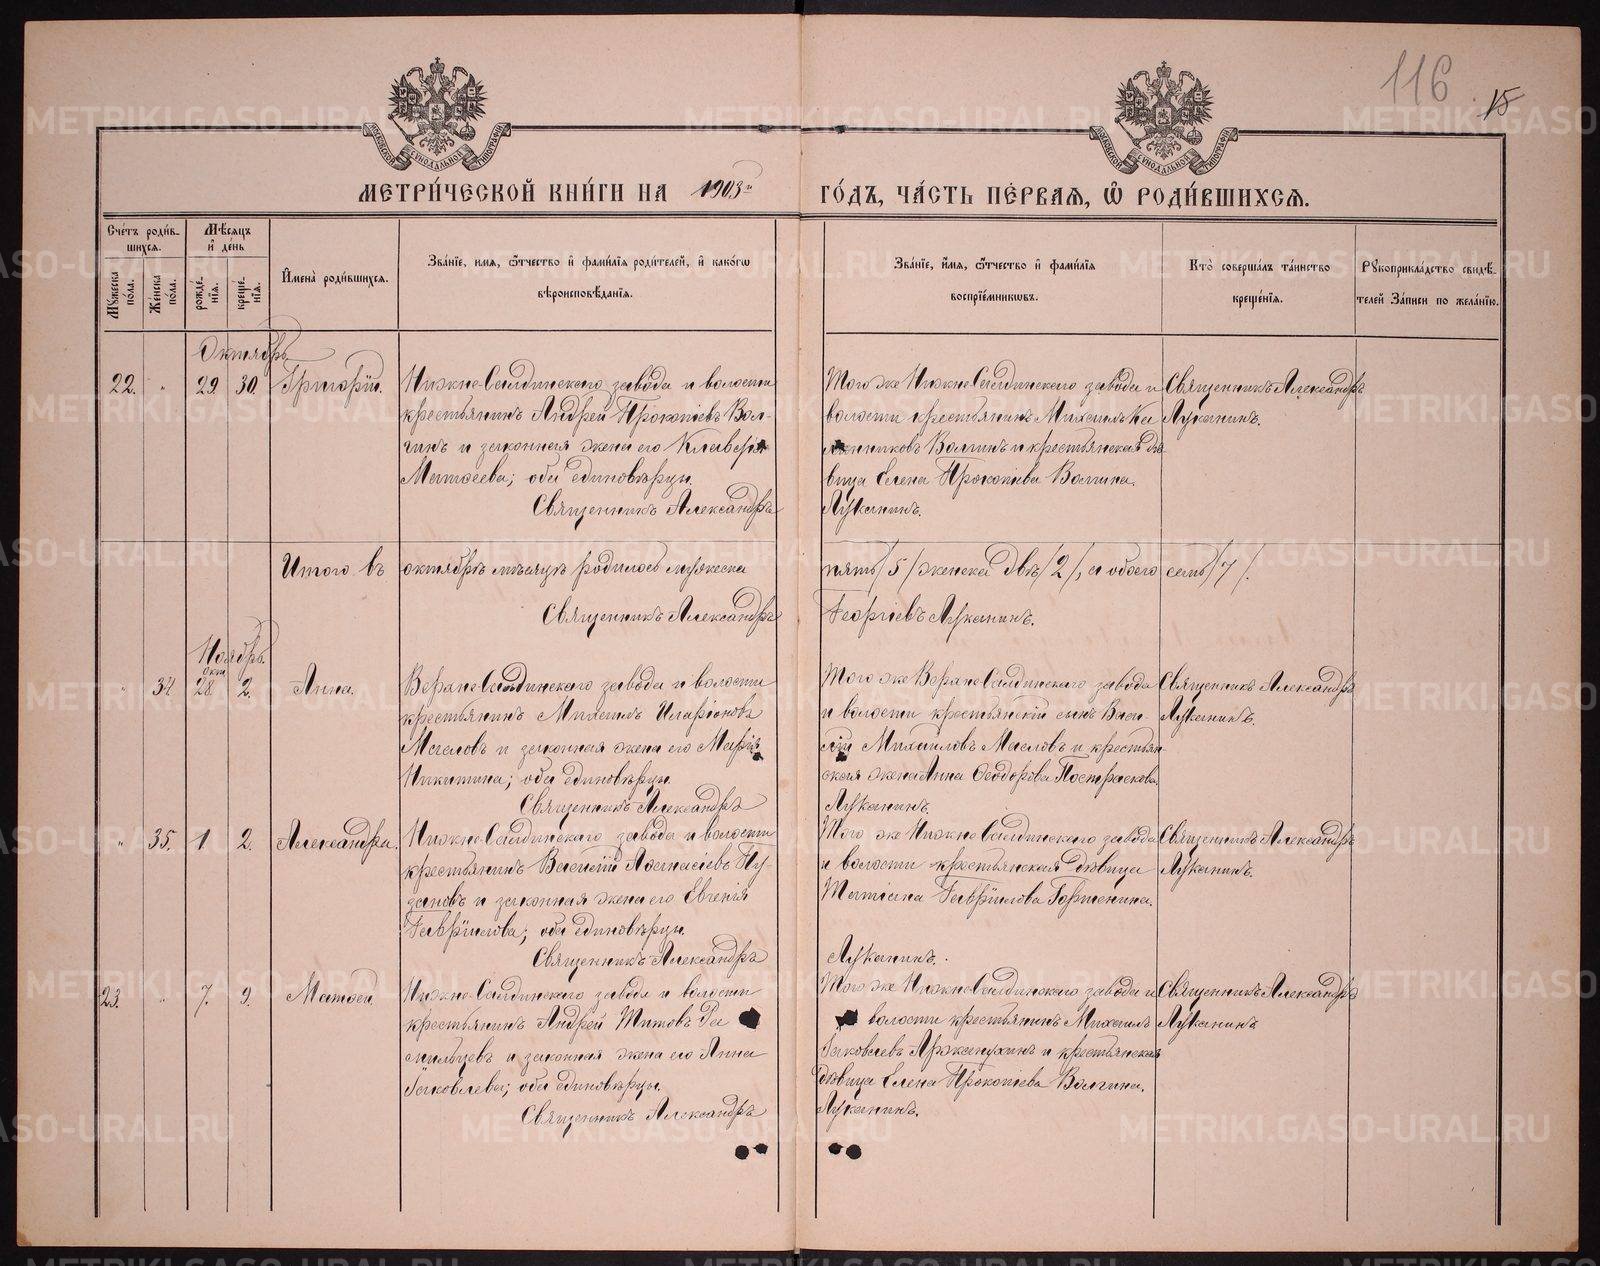 116
15
МОСКОВСКОЙ СѴНОДАЛЬНОЙ ТИПОГРАФИИ
МОСКОВСКОЙ СѴНОДАЛЬНОЙ ТИПОГРАФИИ
МЕТРИ́ЧЕСКОЙ КНИ́ГИ НА 1903-й ГО́ДЪ, ЧА́СТЬ ПЕ́РВАЯ, Ѡ РОДИ́ВШИХСЯ.
Сче́тъ роди́в-
шихся.
Му́жеска по́ла.
Же́нска по́ла.
Мѣ́сяцъ и де́нь
рожде́-
нїя.
креще́-
нїя.
Имена̀ роди́вшихся.
Зва́нїе, имя, ѻ́тчество и фами́лїя роди́телей, и како́гѡ
вѣроисповѣ́данїя.
Зва́нїе, и́мя, ѻ́тчество и фами́лїя
воспрїе́мникѡвъ.
Кто̀ соверша́лъ та́инство
креще́нїя.
Рукоприкла́дство свидѣ́-
телей За́писи по жела́нїю.
Октябрь
22. " 29. 30. Григорій.
Нижне-Салдинскаго завода и волости
крестьянинъ Андрей Прокопіевъ Вол-
гинъ и законная жена его Клавдія
Матѳеева; оба единовѣрцы.
Священникъ Александръ
Того же Нижне-Салдинскаго завода и
волости крестьянинъ Михаилъ
Волгинъ и крестьянская дѣ-
вица Елена Прокопіева Волгина.
Луканинъ.
Священникъ Александръ
Луканинъ.
Итого въ октябрѣ мѣсяцѣ родилось мужеска пять /5/ женска двѣ /2/, а обоего семь /7/.
Священникъ Александръ Георгіевъ Луканинъ.
Ноябрь.
" 34 Окт. 28 2. Анна.
Верхне-Салдинскаго завода и волости
крестьянинъ Михаилъ Иларіоновъ
Масловъ и законная жена его Марія
Никитина; оба единовѣрцы.
Священникъ Александръ
Того же Верхне-Салдинскаго завода
и волости крестьянскій сынъ Васи-
лій Михайловъ Масловъ и крестьян-
ская жена Анна Ѳеодорова
Луканинъ.
Священникъ Александръ
Луканинъ.
" 35. 1 2. Александра.
Нижне-Салдинскаго завода и волости
крестьянинъ Василій Аѳанасіевъ Пу-
зановъ и законная жена его Евгенія
Гавріилова; оба единовѣрцы.
Священникъ Александръ
Того же Нижне-Салдинскаго завода
и волости крестьянская дѣвица
Татіана Гавріилова Горшенина.
Луканинъ.
Священникъ Александръ
Луканинъ.
23. " 7. 9. Матѳей.
Нижне-Салдинскаго завода и волости
крестьянинъ Андрей Титовъ
и законная жена его Анна
Іаковлева; оба единовѣрцы.
Священникъ Александръ
Того же Нижне-Салдинскаго завода и
волости крестьянинъ Михаилъ
Іаковлевъ и крестьянская
дѣвица Елена Прокопіева Волгина.
Луканинъ.
Священникъ Александръ
Луканинъ
METRIKI.GASO-URAL.RU